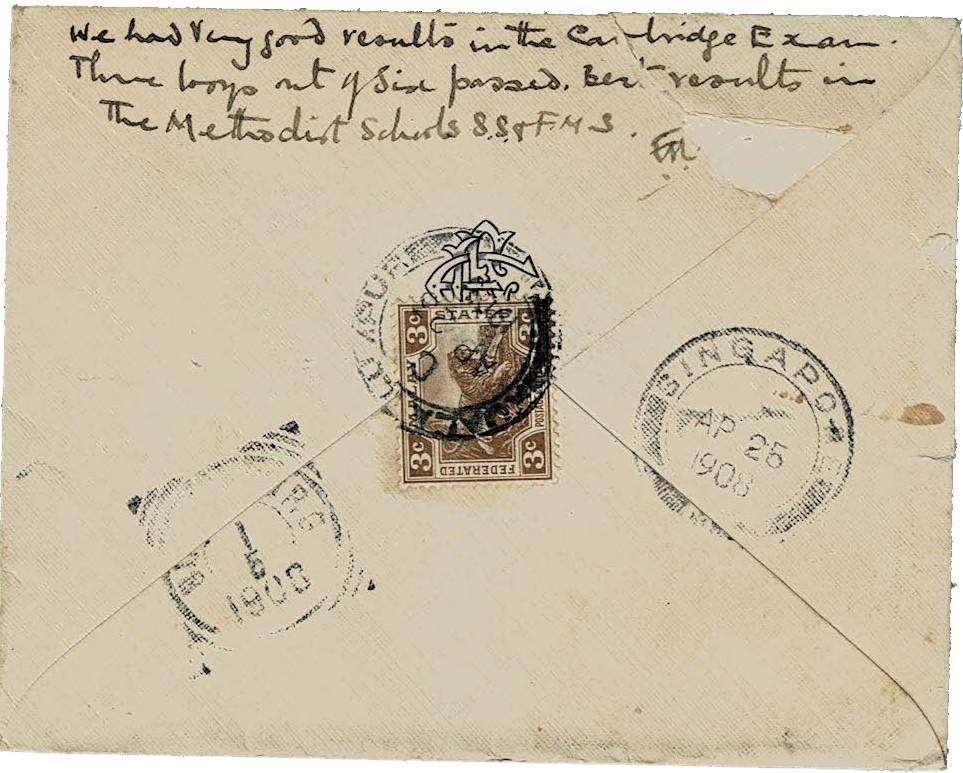 We had Very good results in the Cambridge Exam.
Three boys out of Six passed. Best results in
The Methodist Schools S.S & F.M.S.
KUALA LUMPUR
STATES
3c 3c
MALAY
POSTAGE
3c 3c
FEDERATED
SINGAPORE
AP 25
1908
1
5
1908